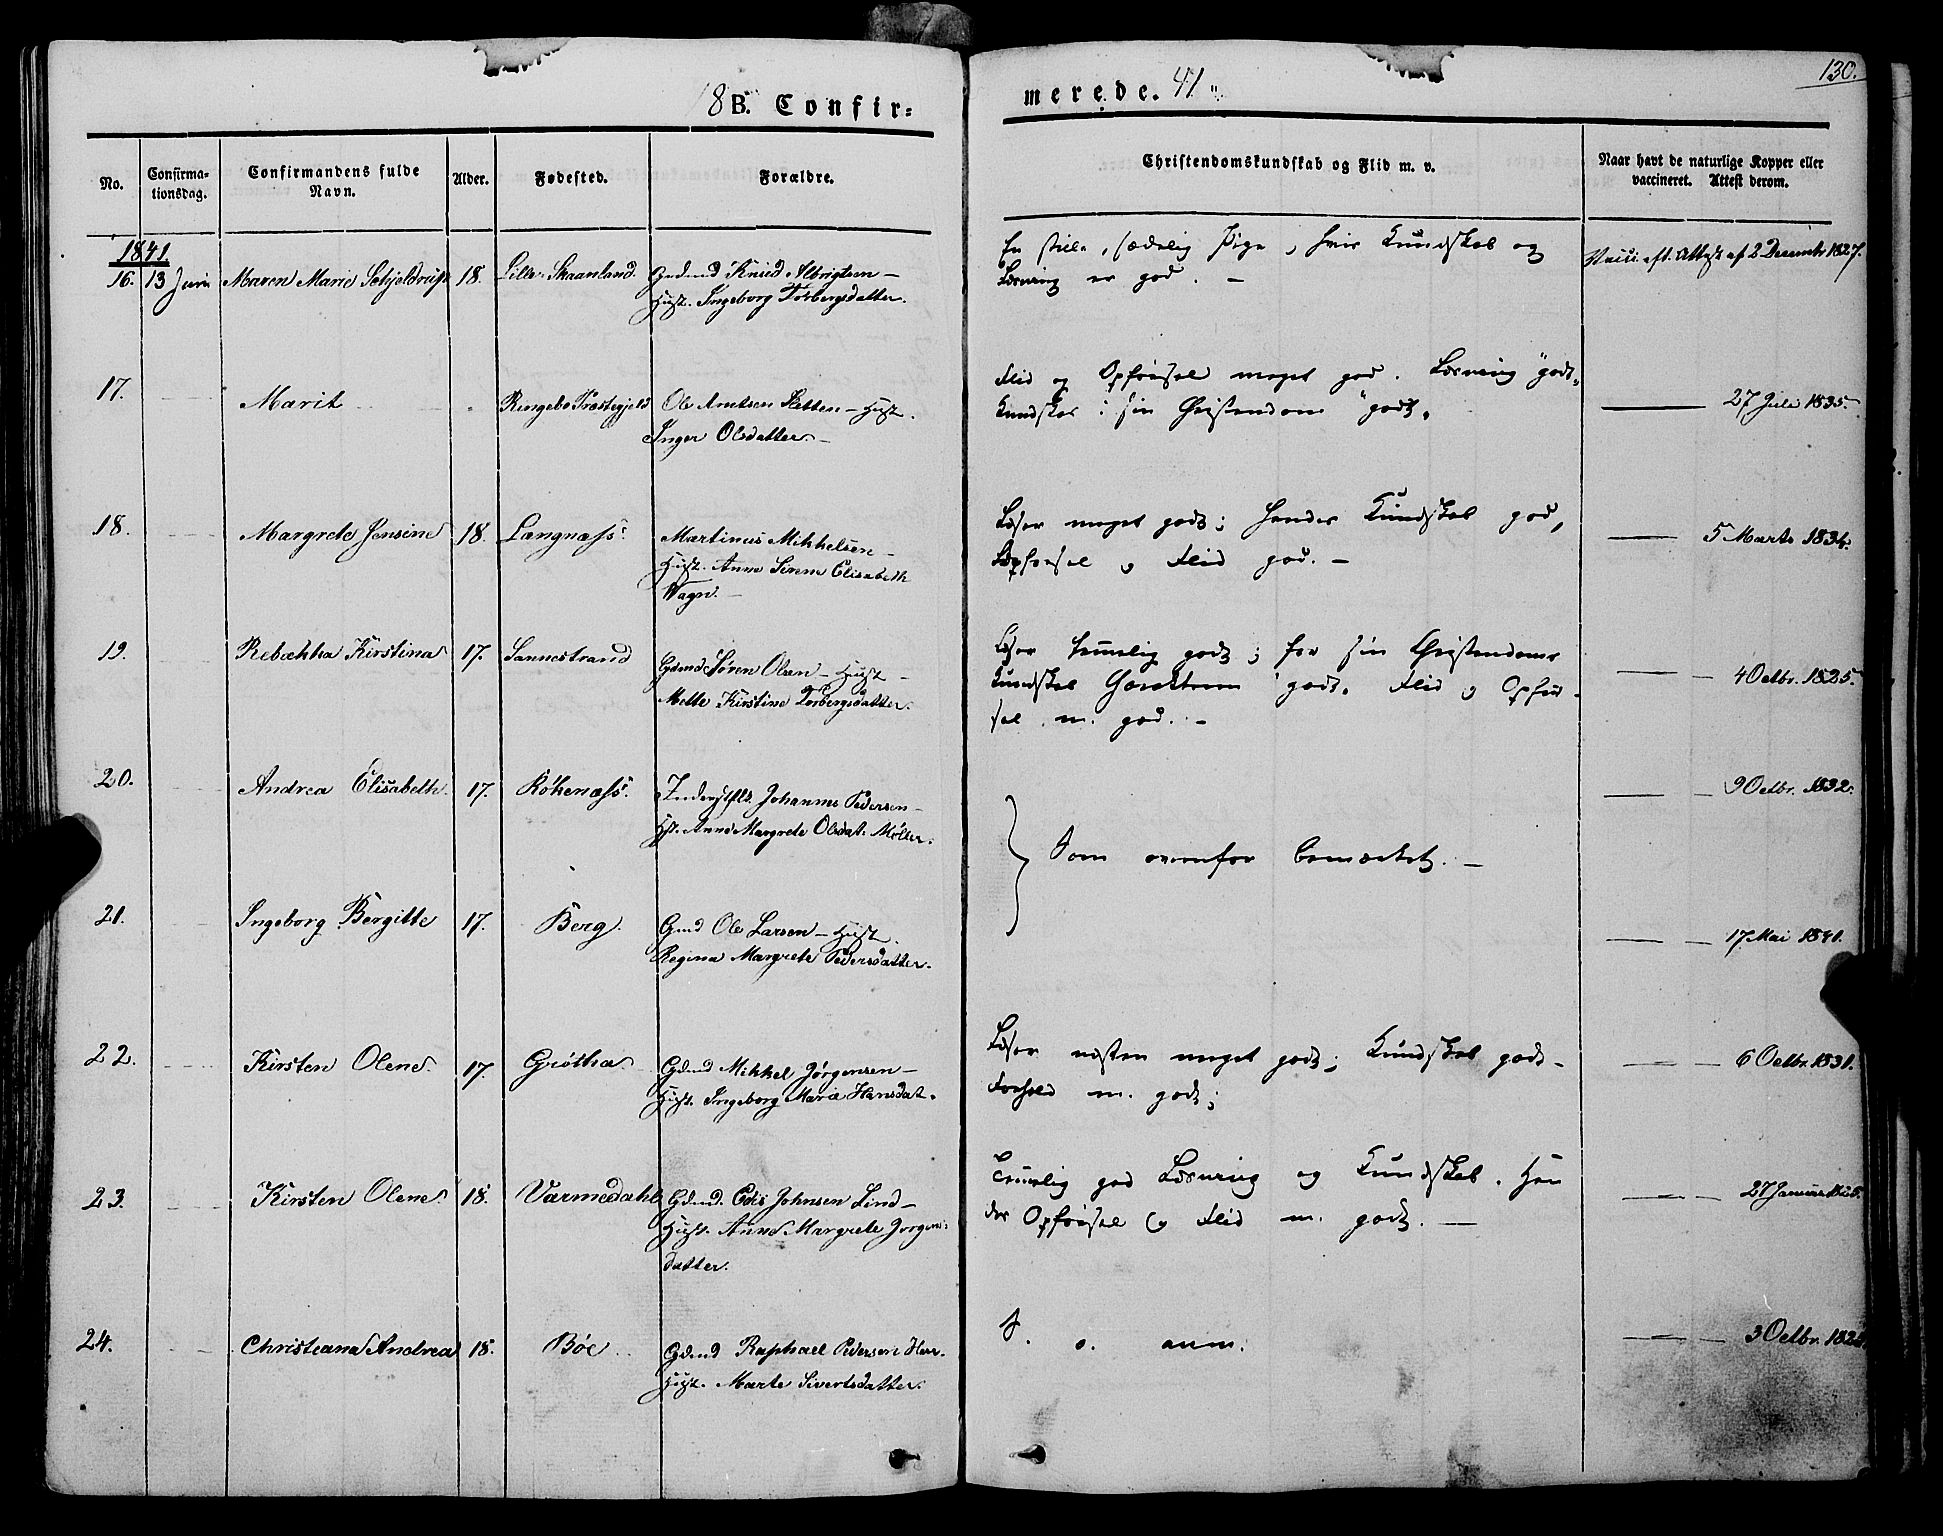 130.
18 B. Confir= merede. 41
No.
Confirma-
tionsdag.
Confirmandens fulde
Navn.
Alder.
Fødested.
Forældre.
Christendomskundskab og Flid m. v.
Naar havt de naturlige Kopper eller
vaccineret. Attest derom.
1841.
16. 13 Juni Maren Marie Schjeldrup 18. Lille-Skaanland. Grdmd Knud Albrigtsen –
Hust. Ingeborg Torbergsdatter.
En stille, sædelig Pige, hvis Kundskab og
Læsning er god. –
Vacci. eft. Attest af 2 Decembr 1827.
17. Marit " Ringebo Præstegjeld Ole Amtsen Sletten – Hust.
Inger Olsdatter. –
Flid og Opførsel meget god. Læsning "godt"
Kundskab i sin Christendom "godt".
27 Juli 1835.
18. Margrete Jensine 18. Langnæss. Martinus Mikkelsen –
Hust. Anne Sirene Elisabeth
Wagn. –
Læser meget godt; hendes Kundskab god,
Opførsel og Flid god. –
5 Marts 1834.
19. Rebækka Kirstina 17. Sannestrand Gdmd Søren Olsen – Hust –
Mette Kirstine Torbergsdatter.
Læser temmelig godt; for sin Christendoms
Kundskab Carakteren "godt". Flid og Opfør-
sel m. god. –
4 Octbr. 1825.
20. Andrea Elisabeth. 17. Røkenæss. Inderstfld. Johannes Pedersen –
Hst. Anne Margrete Olsdat. Møller.
9 Octbr. 1832.
Som ovenfor bemærket. –
21. Ingeborg Bergitte 17. Berg. Gmd Ole Larsen – Hust.
Regina Margrete Pedersdatter.
17 Mai 1841.
22. Kirsten Olene. 17. Grøtha. Gdmd Mikkel Jørgensen –
Hust. Ingeborg Marie Hansdat.
Læser næsten meget godt; Kundskab godt –
Forhold m. godt;
6 Octbr. 1831.
23. Kirsten Olene 18. Varmedahl Gdmd. Edis Johnsen Lind –
Hust. Anne Margrete Jørgens-
datter.
Temmelig god Læsning og Kundskab. Hen
des Opførsel og Flid m. godt. –
27 Januar
24. Christiana Andrea 18. Bøe Gdmd Raphael Pedersen Herr.
Hust. Marte Sivertsdatter.
S. o. anm.
3 Octbr.